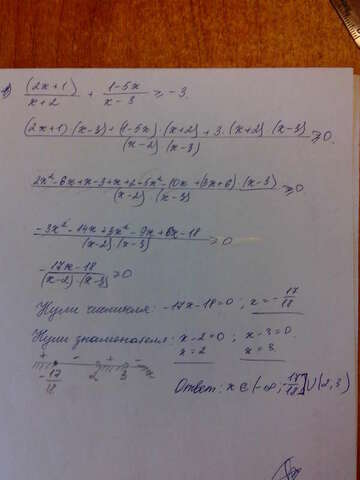 в) (2x+1)/(x+2) + (1-5x)/(x-3) ≥ -3.
((2x+1)·(x-3)+(1-5x)·(x+2)+3·(x+2)·(x-3))/((x-2)·(x-3)) ≥ 0.
(2x²-6x+x-3+x+2-5x²-10x+(3x+6)·(x-3))/((x-2)·(x-3)) ≥ 0.
(-3x²-14x+3x²-9x+6x-18)/((x-2)·(x-3)) ≥ 0
-(17x-18)/((x-2)·(x-3)) ≥ 0
Нули числителя: -17x-18=0; x=-17/18
Нули знаменателя: x-2=0; x-3=0.
x=2 x=3.
+ - + -
-17/18 2 3 x
Ответ: x∈(-∞;-17/18]∪(2;3)